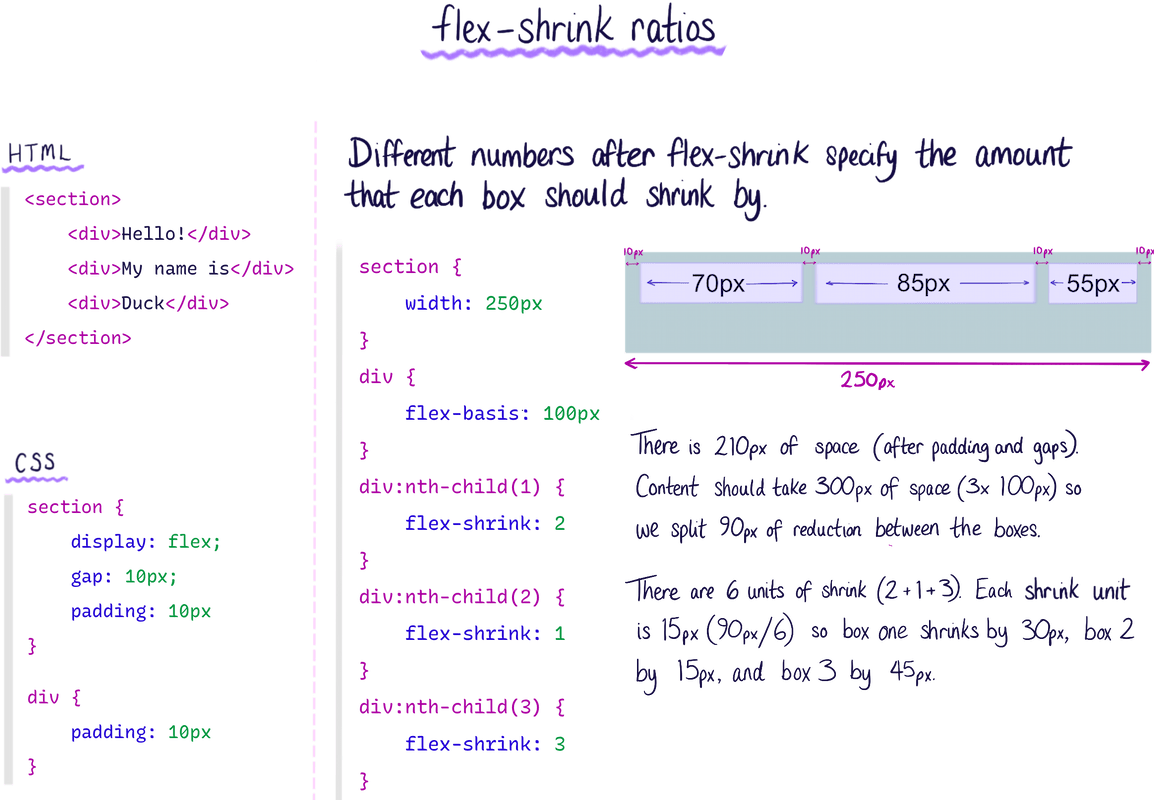 flex-shrink ratios
HTML
<section>
<div>Hello!</div>
<div>My name is</div>
<div>Duck</div>
</section>
CSS
section {
display: flex;
gap: 10px;
padding: 10px
}
div {
padding: 10px
}
Different numbers after flex-shrink specify the amount
that each box should shrink by.
section {
width: 250px
}
div {
flex-basis: 100px
}
div:nth-child(1) {
flex-shrink: 2
}
div:nth-child(2) {
flex-shrink: 1
}
div:nth-child(3) {
flex-shrink: 3
}
10px 10px 10px 10px
70px 85px 55px
250px
There is 210px of space (after padding and gaps).
Content should take 300px of space (3x 100px) so
we split 90px of reduction between the boxes.
There are 6 units of shrink (2+1+3). Each shrink unit
is 15px (90px/6) so box one shrinks by 30px, box 2
by 15px, and box 3 by 45px.